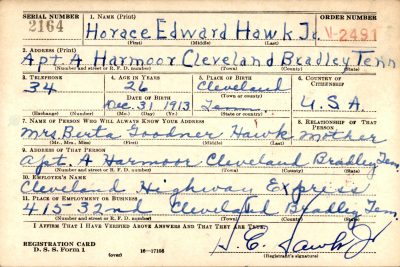 SERIAL NUMBER 1. NAME (Print) ORDER NUMBER
2164 Horace Edward Hawk Jr. V-2491
(First) (Middle) (Last)
2. ADDRESS (Print)
Apt. A Harmoor Cleveland Bradley Tenn
(Number and street or R. F. D. number) (Town) (County) (State)
3. TELEPHONE 4. AGE IN YEARS 5. PLACE OF BIRTH 6. COUNTRY OF CITIZENSHIP
34 26 Cleveland
DATE OF BIRTH (Town or county)
Dec. 31, 1913 Tenn U.S.A.
(Exchange) (Number) (Mo.) (Day) (Yr.) (State or country)
7. NAME OF PERSON WHO WILL ALWAYS KNOW YOUR ADDRESS 8. RELATIONSHIP OF THAT PERSON
Mrs. Berta Goodner Hawk Mother
(Mr., Mrs., Miss) (First) (Middle) (Last)
9. ADDRESS OF THAT PERSON
Apt. A Harmoor Cleveland Bradley Tenn.
(Number and street or R. F. D. number) (Town) (County) (State)
10. EMPLOYER'S NAME
Cleveland Highway Express
11. PLACE OF EMPLOYMENT OR BUSINESS
415-32nd Cleveland Bradley Tenn.
(Number and street or R. F. D. number) (Town) (County) (State)
I AFFIRM THAT I HAVE VERIFIED ABOVE ANSWERS AND THAT THEY ARE TRUE.
REGISTRATION CARD
D. S. S. Form 1 (over) 16—17105 H. E. Hawk Jr
(Registrant's signature)